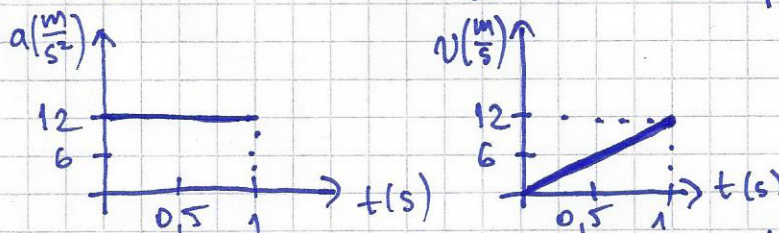 a(m/s²)
12
6
0,5 1 t(s)
v(m/s)
12
6
0,5 1 t(s)